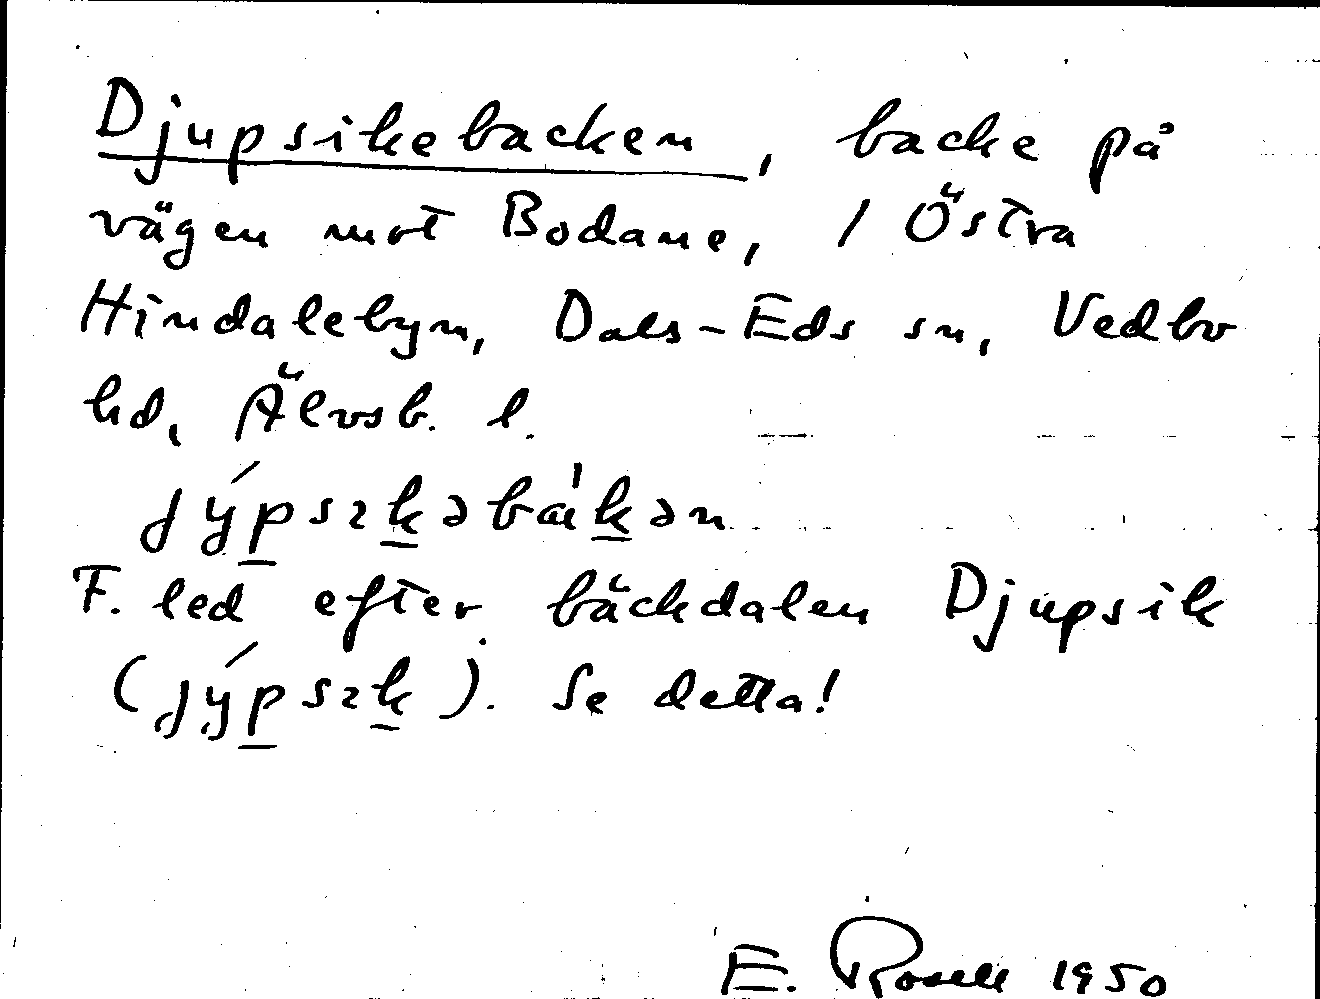 Djupsikebacken, backe på
vägen mot Bodane, / Östra
Hindalebyn, Dals-Eds sn, Vedbo
hd, Älvsb. l.
jýpsɪkəbákən
F. led efter bäckdalen Djupsik
(jýpsɪk). Se detta!
E. Rosell 1950